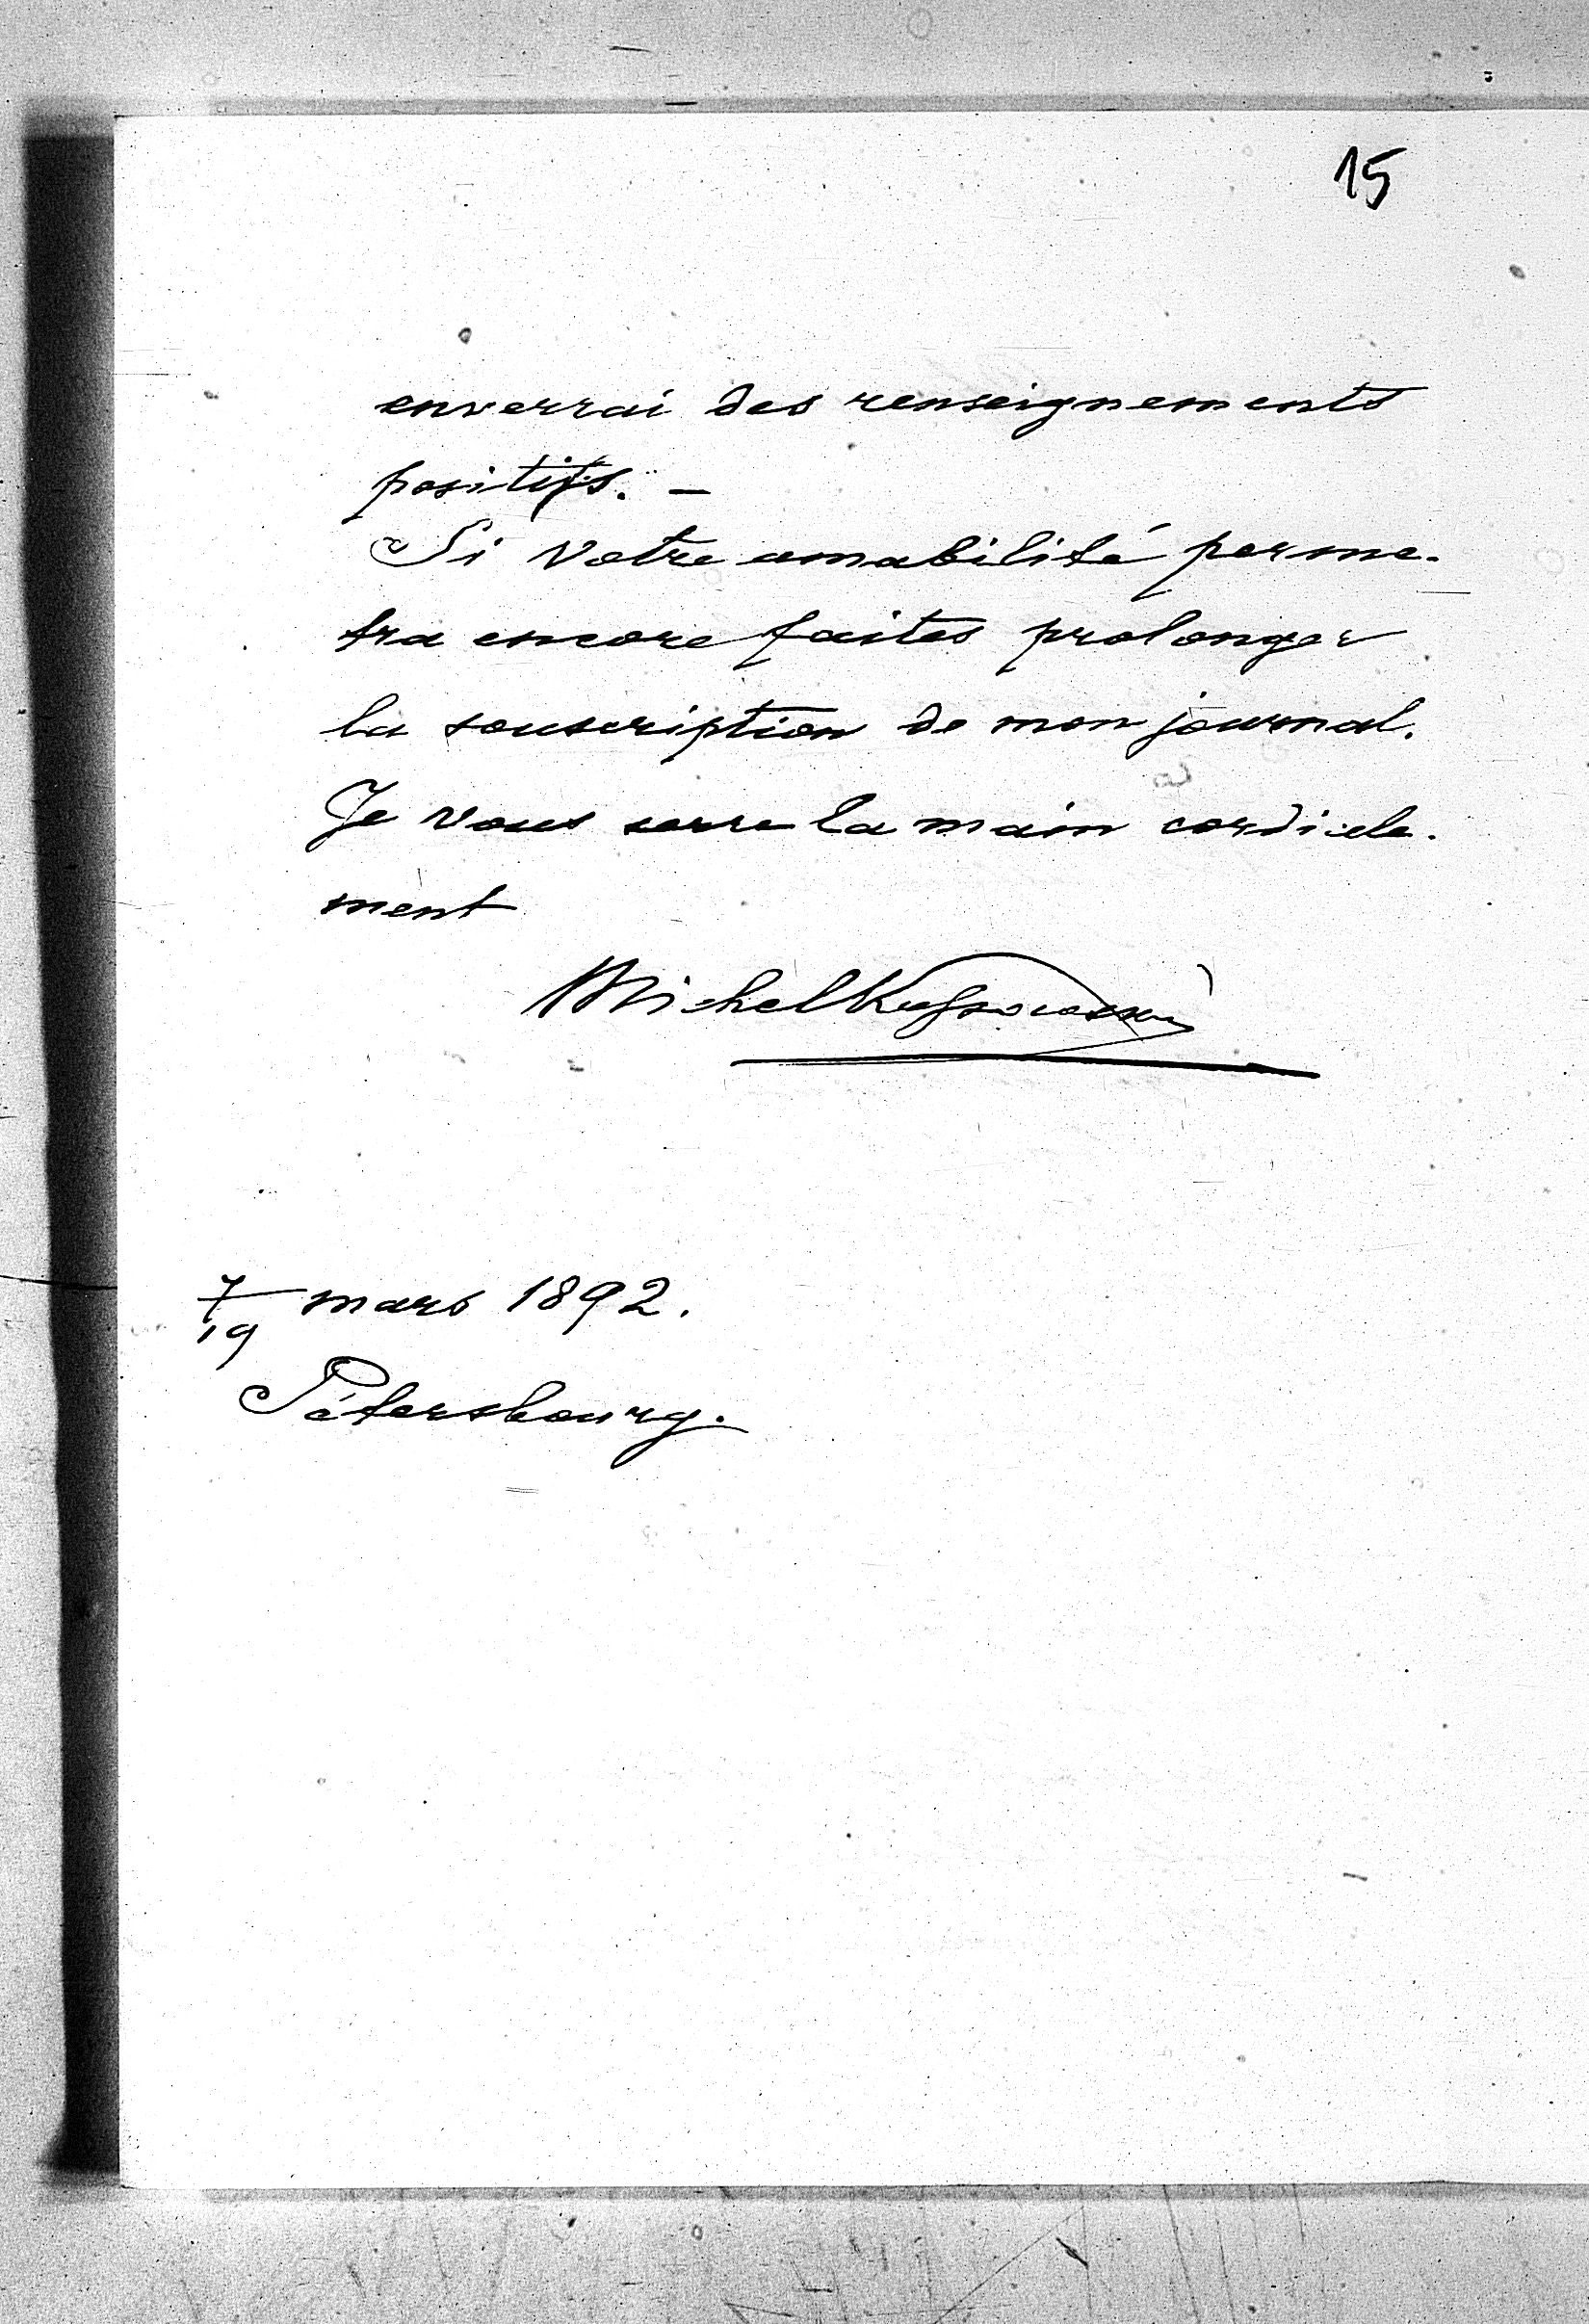 15
enverrai des renseignements
positifs. –
Si votre amabilité perme-
tra encore faites prolonger
la souscription de mon journal.
Je vous serre la main cordiale-
ment
Michel
7/19 mars 1892.
Pétersbourg.